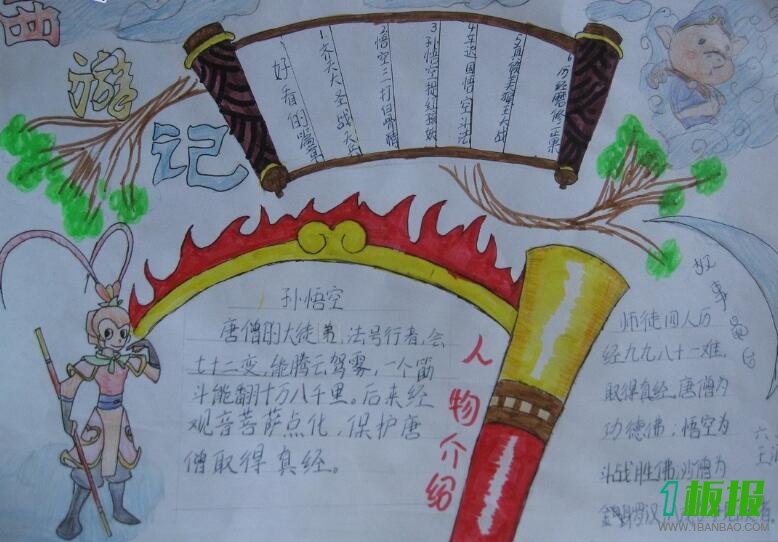 西
游
记
好看的篇章
1大大圣战天兵
2悟空三打白骨精
3孙悟空擒红孩儿
4车迟国悟空斗法
5真假美猴王大战
6历经磨修正果
孙悟空
唐僧的大徒弟,法号行者,会
七十二变,能腾云驾雾,一个筋
斗能翻十万八千里。后来经
观音菩萨点化,保护唐
僧取得真经。
人物介绍
故事
师徒四人历
经九九八十一难,
取得真经,唐僧为
功德佛,悟空为
斗战胜佛,沙僧为
罗汉
六
王
1板报
WWW.1BANBAO.COM